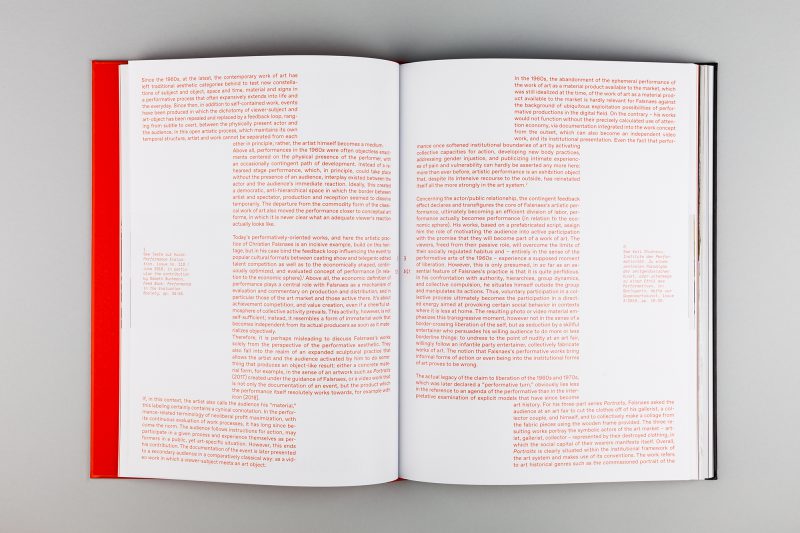 Since the 1960s, at the latest, the contemporary work of art has
left traditional aesthetic categories behind to test new constella-
tions of subject and object, space and time, material and signs in
a performative process that often expansively extends into life and
the everyday. Since then, in addition to self-contained work, events
have been produced in which the dichotomy of viewer-subject and
art-object has been repealed and replaced by a feedback loop, rang-
ing from subtle to overt, between the physically present actor and
the audience. In this open artistic process, which maintains its own
temporal structure, artist and work cannot be separated from each
other in principle, rather, the artist himself becomes a medium.
Above all, performances in the 1960s were often objectless
ments centered on the physical presence of the performer, with
an occasionally contingent path of development. Instead of a re-
hearsed stage performance, which, in principle, could take place
without the presence of an audience, interplay existed between the
actor and the audience's immediate reaction. Ideally, this creates
a democratic, anti-hierarchical space in which the border between
artist and spectator, production and reception seemed to dissolve
temporarily. The departure from the commodity form of the clas-
sical work of art also moved the performance closer to conceptual art
forms, in which it is never clear what an adequate viewer's reaction
actually looks like.
Today's performatively-oriented works, and here the artistic prac-
tice of Christian Falsnaes is an incisive example, build on this her-
itage, but in his case bind the feedback loop influencing the event to
popular cultural formats between casting show and telegenic edited
talent competition as well as to the economically shaped, contin-
uously optimized, and evaluated concept of performance (in rela-
tion to the economic sphere).¹ Above all, the economic definition of
performance plays a central role with Falsnaes as a mechanism of
evaluation and commentary on production and distribution, and in
particular those of the art market and those active there. It's about
achievement competition, and value creation, even if a cheerful at-
mosphere of collective activity prevails. This activity, however, is not
self-sufficient; instead, it resembles a form of immaterial work that
becomes independent from its actual producers as soon as it mate-
rializes objectively.
Therefore, it is perhaps misleading to discuss Falsnaes's works
solely from the perspective of the performative aesthetic. They
also fall into the realm of an expanded sculptural practice that
allows the artist and the audience activated by him to do some-
thing that produces an object-like result: either a concrete mate-
rial form, for example, in the sense of an artwork such as Portraits
(2017) created under the guidance of Falsnaes, or a video work that
is not only the documentation of an event, but the product which
the performance itself resolutely works towards, for example with
Icon (2018).
If, in this context, the artist also calls the audience his "material,"
this labeling certainly contains a cynical connotation. In the perfor-
mance-related terminology of neoliberal profit maximization, with
its continuous evaluation of work processes, it has long since be-
come the norm. The audience follows instructions for action, may
participate in a given process and experience themselves as per-
formers in a public, yet art-specific situation. However, this ends
his contribution. The documentation of the event is later presented
to a secondary audience in a comparatively classical way: as a vid-
eo work in which a viewer-subject meets an art object.
1
In the 1960s, the abandonment of the ephemeral performance of
the work of art as a material product available to the market, which
was still idealized at the time, of the work of art as a material prod-
uct available to the market is hardly relevant for Falsnaes against
the background of ubiquitous exploitation possibilities of perfor-
mative productions in the digital field. On the contrary – his works
would not function without their precisely calculated use of atten-
tion economy, via documentation integrated into the work concept
from the outset, which can also become an independent video
work, and its institutional presentation. Even the fact that perfor-
mance once softened institutional boundaries of art by activating
collective capacities for action, developing new body practices,
addressing gender injustice, and publicizing intimate experienc-
es of pain and vulnerability can hardly be asserted any more here;
more than ever before, artistic performance is an exhibition object
that, despite its intensive recourse to the outside, has reinstated
itself all the more strongly in the art system.²
Concerning the actor/public relationship, the contingent feedback
effect declares and transfigures the core of Falsnaes's artistic per-
formance, ultimately becoming an efficient division of labor, per-
formance actually becomes performance (in relation to the eco-
nomic sphere). His works, based on a prefabricated script, assign
him the role of motivating the audience into active participation
with the promise that they will become part of a work of art. The
viewers, freed from their passive role, will overcome the limits of
their socially regulated habitus and – entirely in the sense of the
performative arts of the 1960s – experience a supposed moment
of liberation. However, this is only presumed, in so far as an es-
sential feature of Falsnaes's practice is that it is quite perfidious.
In his confrontation with authority, hierarchies, group dynamics,
and collective compulsion, he situates himself outside the group
and manipulates its actions. Thus, voluntary participation in a col-
lective process ultimately becomes the participation in a direct-
ed energy aimed at provoking certain social behavior in contexts
where it is less at home. The resulting photo or video material em-
phasizes this transgressive moment, however not in the sense of a
border-crossing liberation of the self, but as seduction by a skillful
entertainer who persuades his willing audience to do more or less
borderline things: to undress to the point of nudity at an art fair,
willingly follow an infantile party entertainer, collectively fabricate
works of art. The notion that Falsnaes's performative works bring
informal forms of action or even being into the institutional forms
of art proves to be wrong.
The actual legacy of the claim to liberation of the 1960s and 1970s,
which was later declared a "performative turn," obviously lies less
in the reference to an agenda of the performative than in the inter-
pretative examination of explicit models that have since become
art history. For his three part series Portraits, Falsnaes asked the
audience at an art fair to cut the clothes off of his gallerist, a col-
lector couple, and himself, and to collectively make a collage from
the fabric pieces using the wooden frame provided. The three re-
sulting works portray the symbolic actors of the art market – art-
ist, gallerist, collector – represented by their destroyed clothing, in
which the social capital of their wearers manifests itself. Overall,
Portraits is clearly situated within the institutional framework of
the art system and makes use of its conventions. The work refers
to art historical genres such as the commissioned portrait of the